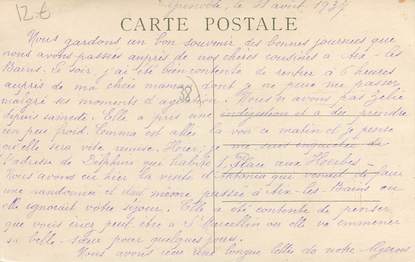 12 €
Grenoble, le 31 août 1937
CARTE POSTALE
Nous gardons un bon souvenir des bonnes journées que
nous avons passées auprès de nos chères cousines à Aix-les
Bains. Le soir j'ai été bien contente de rentrer à 6 heures
auprès de ma chère maman dont je ne peux me passer
malgré ses moments d'
38
Nous n'avons pas Zélie
depuis samedi. Elle a pris une indigestion et a dû prendre
un peu froid. Emma est allée la voir ce matin et je pense
qu'elle sera vite remise. Hier, je me suis
l'adresse de Delphine qui habite 1 Place aux Herbes
Nous avons eu hier la visite d'Antonia qui venait de faire
une randonnée et était même passée à Aix-les-Bains ou
elle ignorait votre séjour. Elle a été contente de penser
que vous irez peut être à St Marcellin ou elle va emmener
sa belle-sœur pour quelques jours.
Nous avons reçu une longue lettre de notre